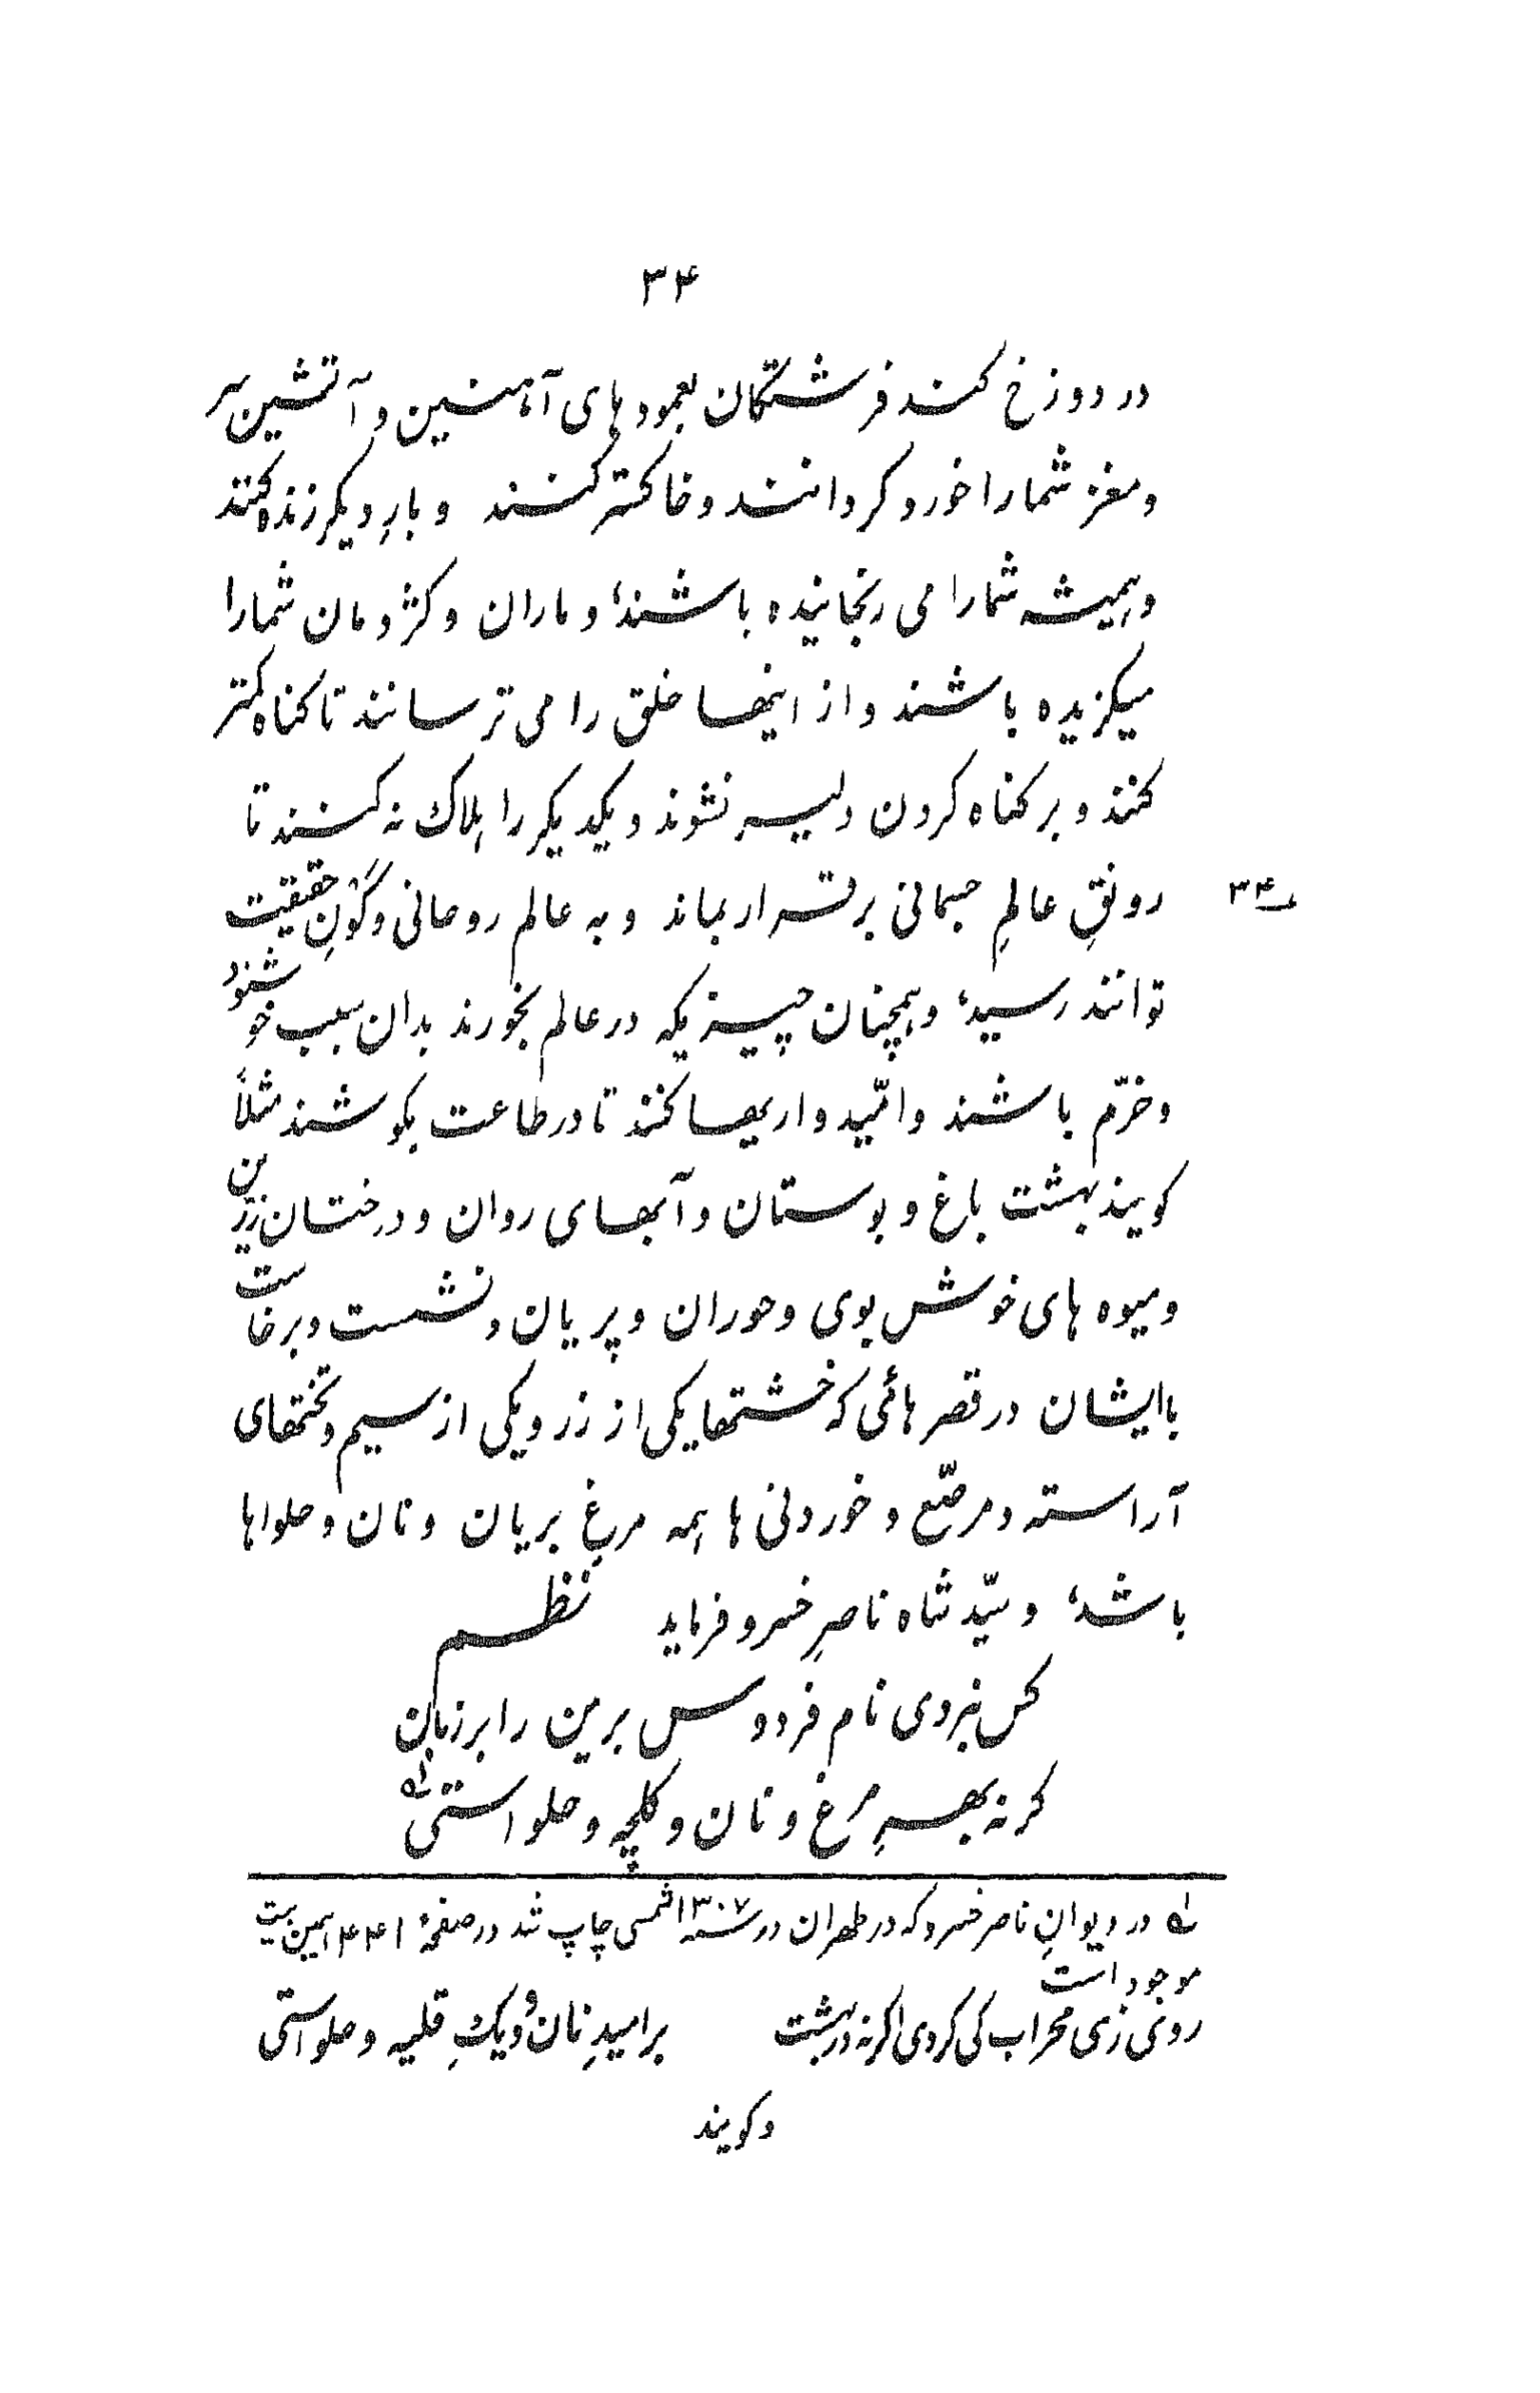 ۳۴
در دوزخ کنند فرشتکان بعمودهای آهنین و آتشین سر
و مغز شما را خورد کردانند و خاکستر کنند و بارِ دیکر زنده کنند
و همیشه شما را می رنجانیده باشند، و ماران و کژدومان شما را
میکزیده باشند و از اینها خلق را می ترسانند تا کناه کمتر
کنند و بر کناه کردن دلیر نشوند و یکدیکر را هلاک نه کنند تا
رونقِ عالمِ جسمانی برقرار بماند و به عالم روحانی و کَوْنِ حقیقت
۳۴
توانند رسید، و همچنان چیزیکه در عالم بخورند بدان سبب خوشنود
و خرّم باشند و امّیدواریها کنند تا در طاعت بکوشند مثلاً
کویند بهشت باغ و بوستان و آبهای روان و درختان زرّین
و میوه های خوش بوی و حوران و پریان و نشست و برخاست
با ایشان در قصرهائی که خشتها یکی از زر و یکی از سیم و تختهای
آراسته و مرصّع و خوردنی ها همه مرغِ بریان و نان و حلواها
باشد، و سیّد شاه ناصرِ خسرو فرماید نظم
کس نبردی نام فردوس برین را بر زبان
کر نه بهرِ مرغ و نان و کلچه و حلواستی ؎۱
؎۱ در دیوانِ ناصر خسرو که در طهران در سنه ۱۳۰۷ شمسی چاپ شد در صفحهٔ ۴۴۱ همین بیت
موجود است
روی زی محراب کی کردی اکر نه در بهشت بر امیدِ نان و دیکِ قلیه و حلواستی
و کویند